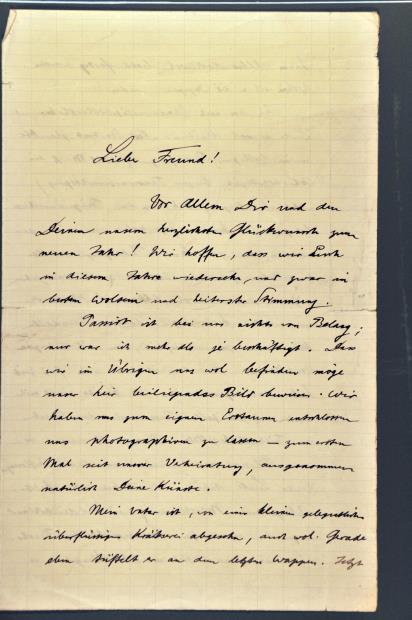 Lieber Freund!
Vor Allem Dir und den
Deinen unsern herzlichsten Glückwunsch zum
neuen Jahr! Wir hoffen, dass wir Euch
in diesem Jahre wiedersehn, und zwar in
bestem Wolsein und heiterster Stimmung.
Passirt ist bei uns nichts von Belang;
nur war ich mehr als je beschäftigt. Dass
wir im Übrigen uns wol befinden möge
unser hier beiliegendes Bild beweisen. Wir
haben uns zum eignen Erstaunen entschlossen
uns photographiren zu lassen – zum ersten
Mal seit unserer Verheiratung, ausgenommen
natürlich Deine Künste.
Mein Vater ist, von einer kleinen gelegentlichen
überflüssigen abgesehen, auch wol. Gerade
eben tüftelt er an dem letzten Wappen. Jetzt